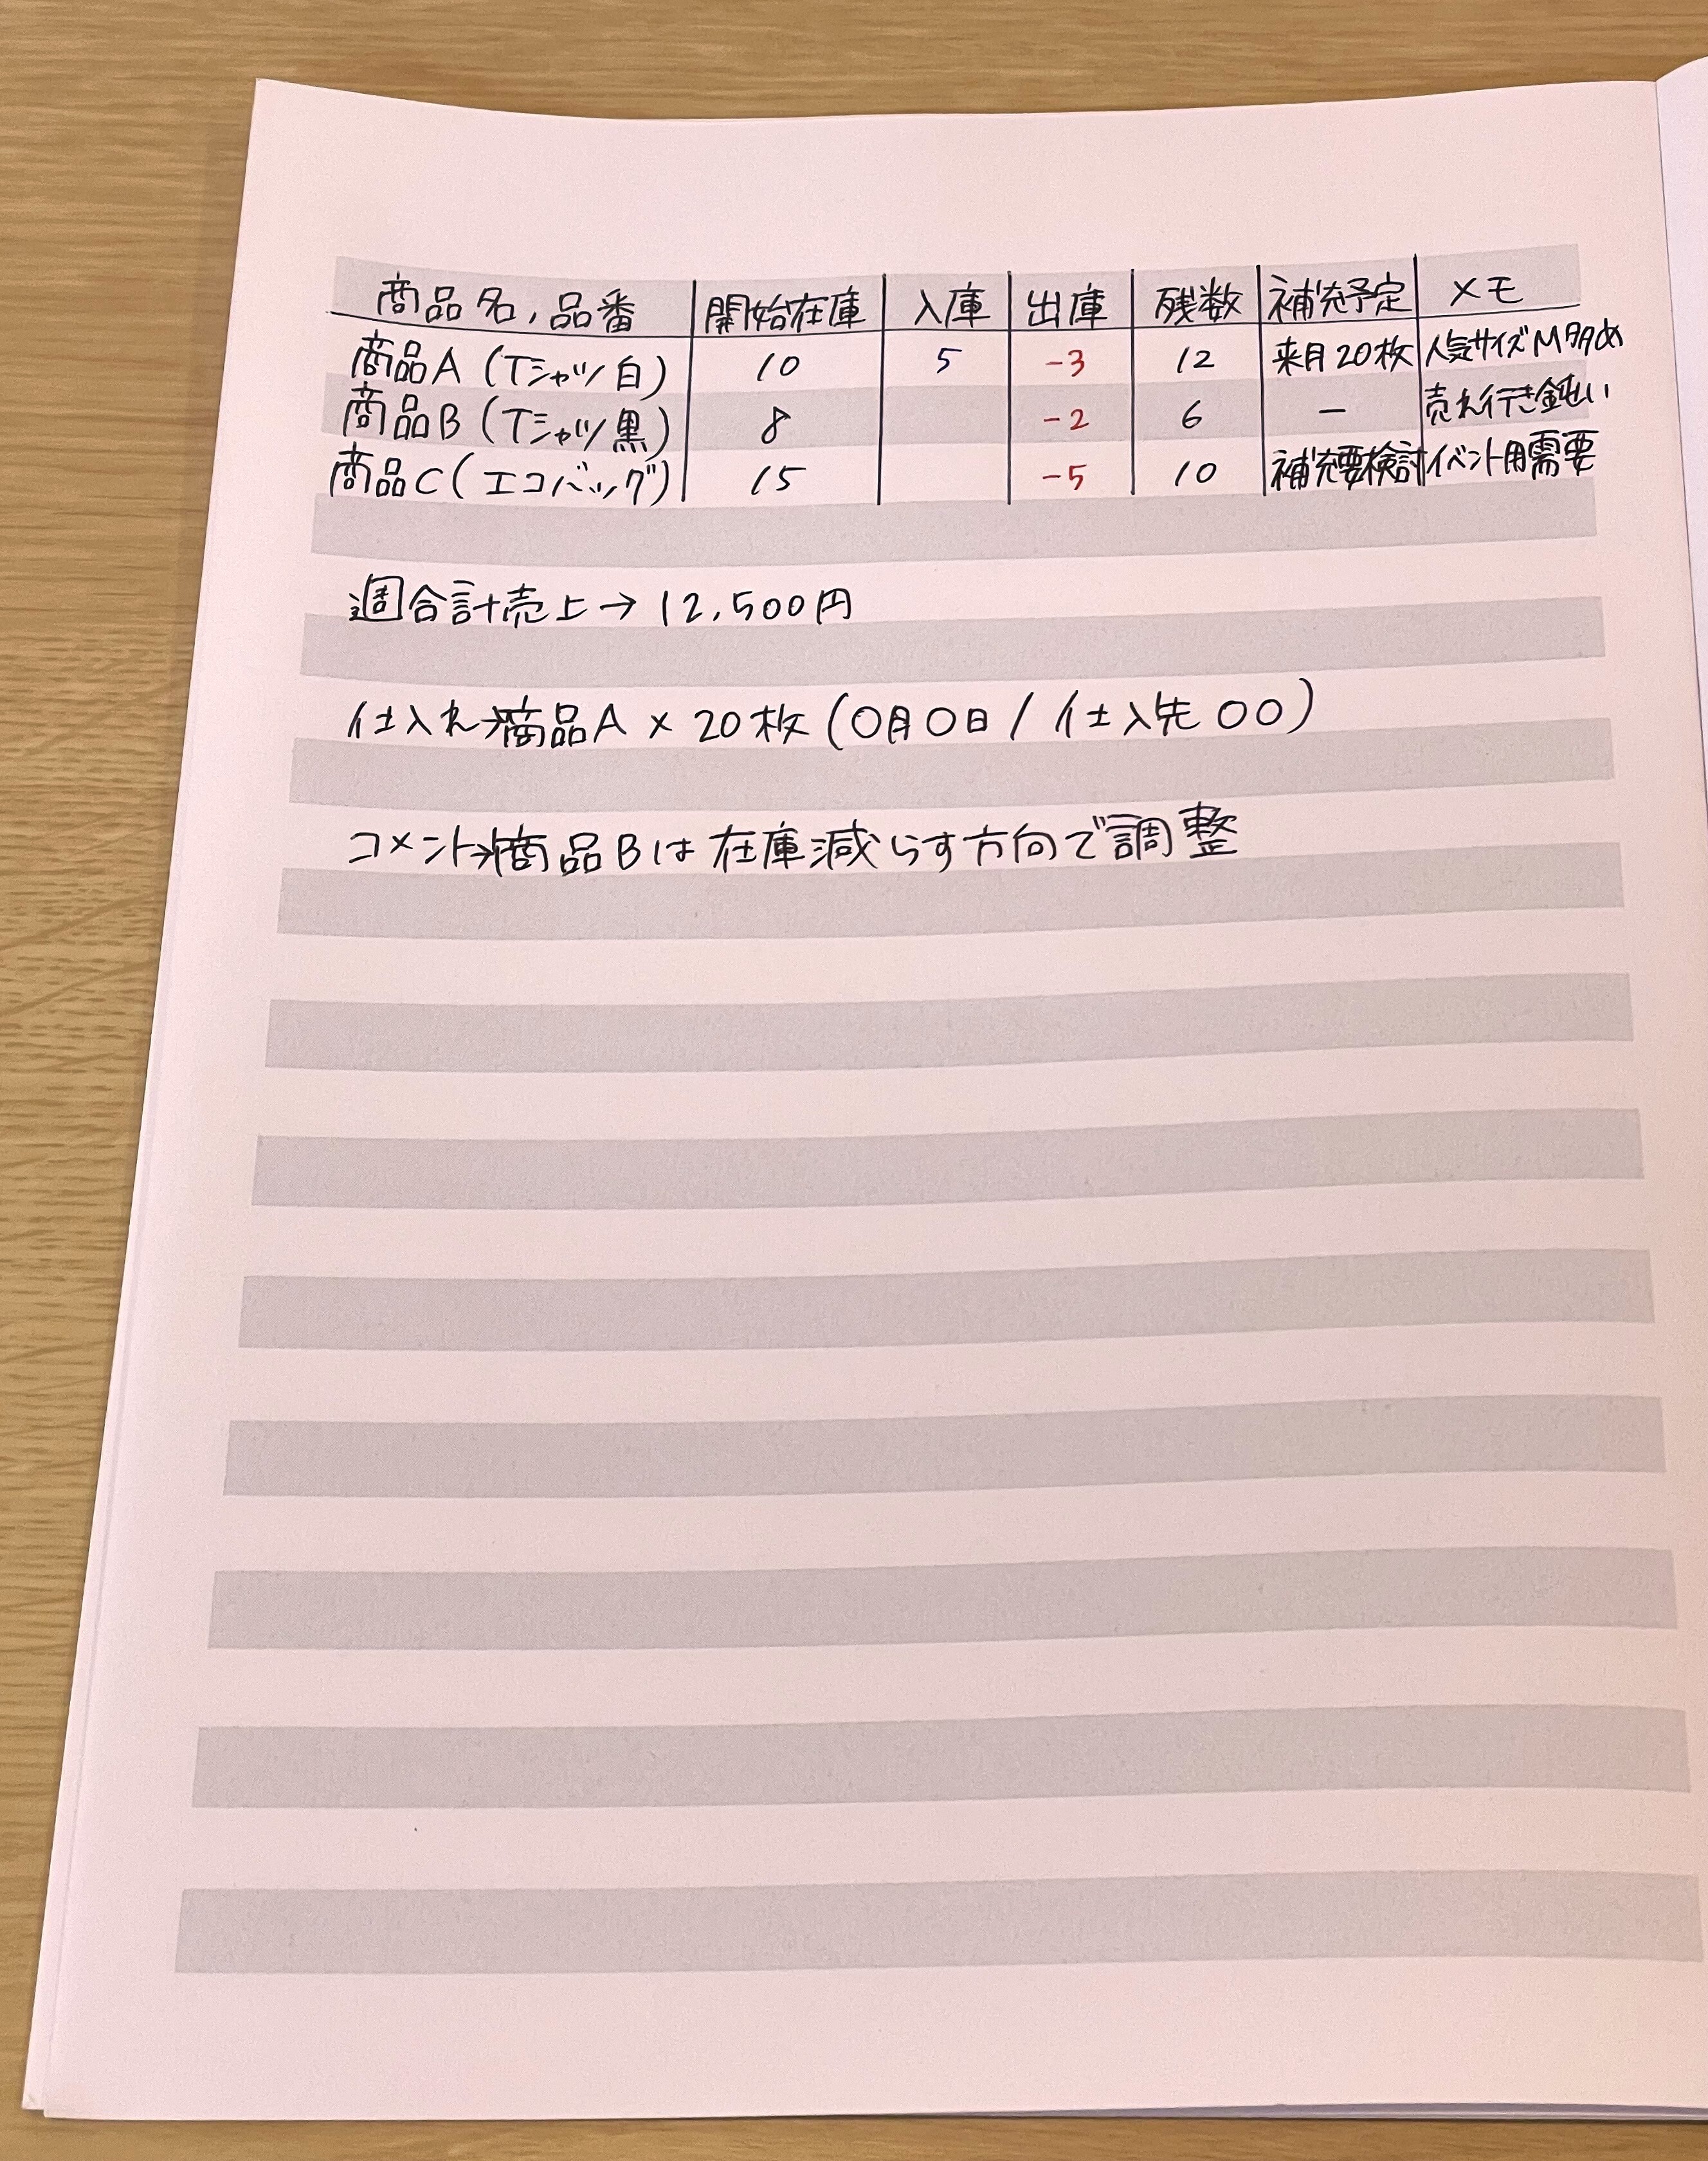 商品名,品番 開始在庫 入庫 出庫 残数 補充予定 メモ
商品A(Tシャツ/白) 10 5 -3 12 来月20枚 人気サイズM多め
商品B(Tシャツ/黒) 8 -2 6 ー 売れ行き鈍い
商品C(エコバッグ) 15 -5 10 補充要検討 イベント用需要
週合計売上→12,500円
仕入れ→商品A×20枚(〇月〇日/仕入先〇〇)
コメント→商品Bは在庫減らす方向で調整